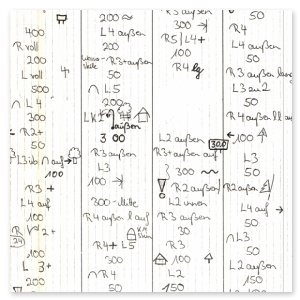 400
R voll
200
L voll
500
∩ L4
300
R2+
50
100
R3 +
L4 auf
100
R √2+
24
100
L 3+
200
200
L4 außen
200
R3+außen
50
∩ L5
200
LK1
außen
300
R3 außen
L3
100 →
300 - Mitte
R4 außen l auf
R4+ L5
300
∩ R4
50
R3 außen
300 →
R5/L4+
100
R4 lg
L2 außen
R3+außen auf
300
R2 außen
L2 innen
R3 außen
30
R3
100 ↑
L2
150
50
R4
L4 außen
50
R3 außen lang
L3 zu 2
50
R4 außen ll auf
300
← 100
L3
50
R2 außen
L4 auf →
50
∩ L3
50
L2 außen
150